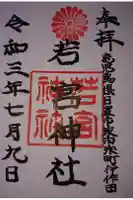 奉拝
鹿児島県日置市吹上町中作田
若宮神社
若宮
神社
令和三年七月九日